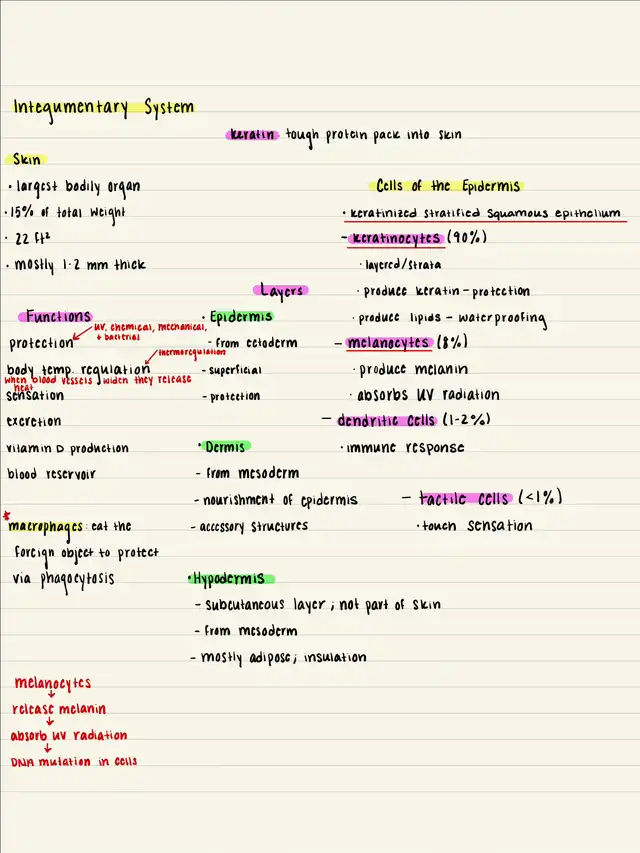 Integumentary System
keratin tough protein pack into skin
Skin
• largest bodily organ
• 15% of total weight
• 22 ft²
• mostly 1-2 mm thick
Functions
protection
UV, chemical, mechanical,
+ bacterial
body temp. regulation
thermoregulation
when blood vessels widen they release
heat
sensation
excretion
vitamin D production
blood reservoir
* macrophages: eat the
foreign object to protect
via phagocytosis
melanocytes
↓
release melanin
↓
absorb UV radiation
↓
DNA mutation in cells
Layers
• Epidermis
- from ectoderm
- superficial
- protection
• Dermis
- from mesoderm
- nourishment of epidermis
- accessory structures
• Hypodermis
- subcutaneous layer; not part of skin
- from mesoderm
- mostly adipose; insulation
Cells of the Epidermis
• keratinized stratified squamous epithelium
- keratinocytes (90%)
• layered/strata
• produce keratin - protection
• produce lipids - waterproofing
- melanocytes (8%)
• produce melanin
• absorbs UV radiation
- dendritic cells (1-2%)
• immune response
- tactile cells (<1%)
• touch sensation